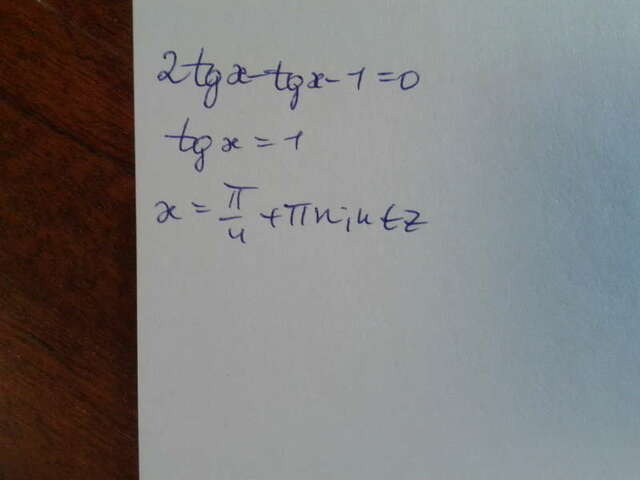 2tgx-tgx-1=0
tgx=1
x=π/4+πn;n∈z